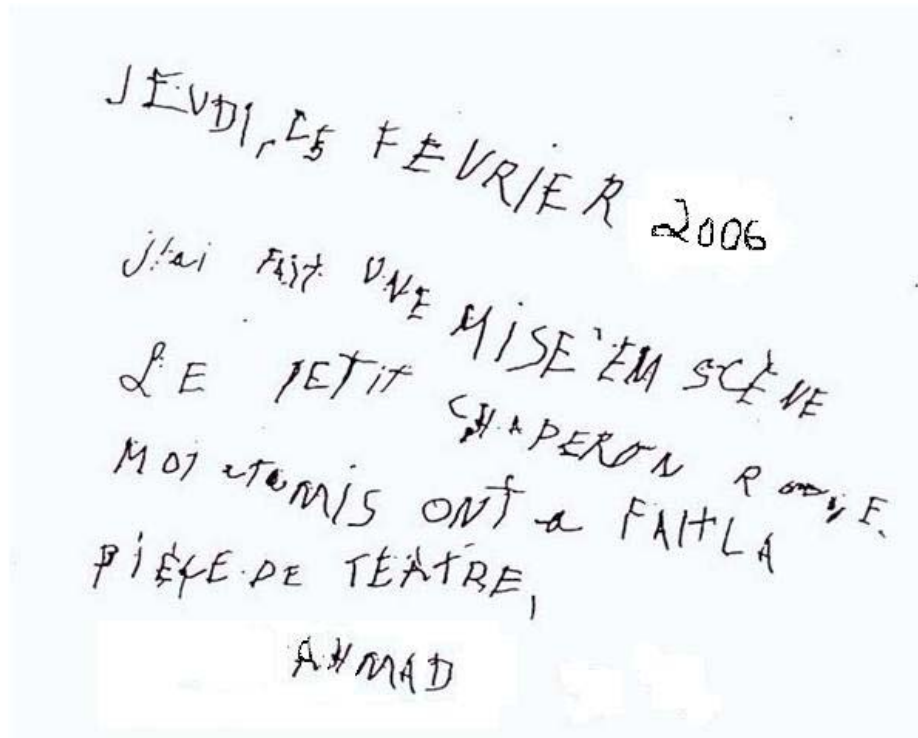 JEUDI, LE 5 FEVRIER 2006
j'ai FAIT UNE MISE EM SCÈNE
LE PETIT CHAPERON ROUGE.
MOI et amis ONT a FAIT LA
PIÈCE DE TEÂTRE,
AHMAD